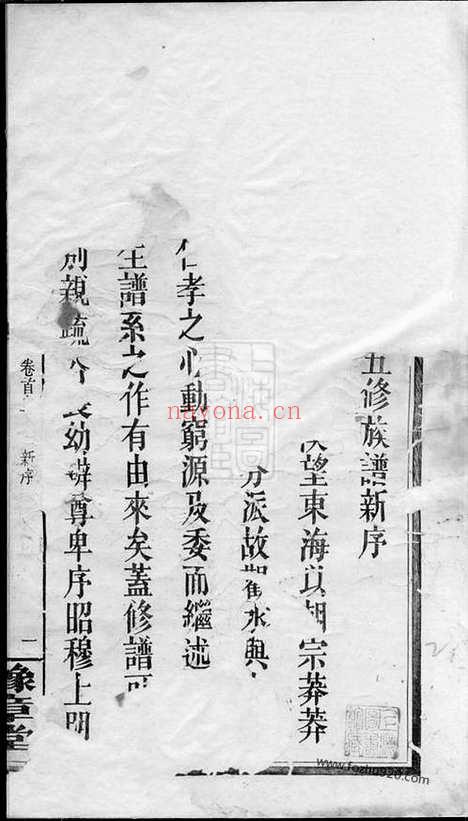 五修族譜新序
望東海以朝宗莽莽
分派故觀水與
仁孝之心動窮源及委而繼述
生譜系之作有由來矣蓋修譜可
別親疏分長幼辨尊卑序昭穆上明
卷首
新序
一
豫章堂
nayona.cn
www.fozhu920.com